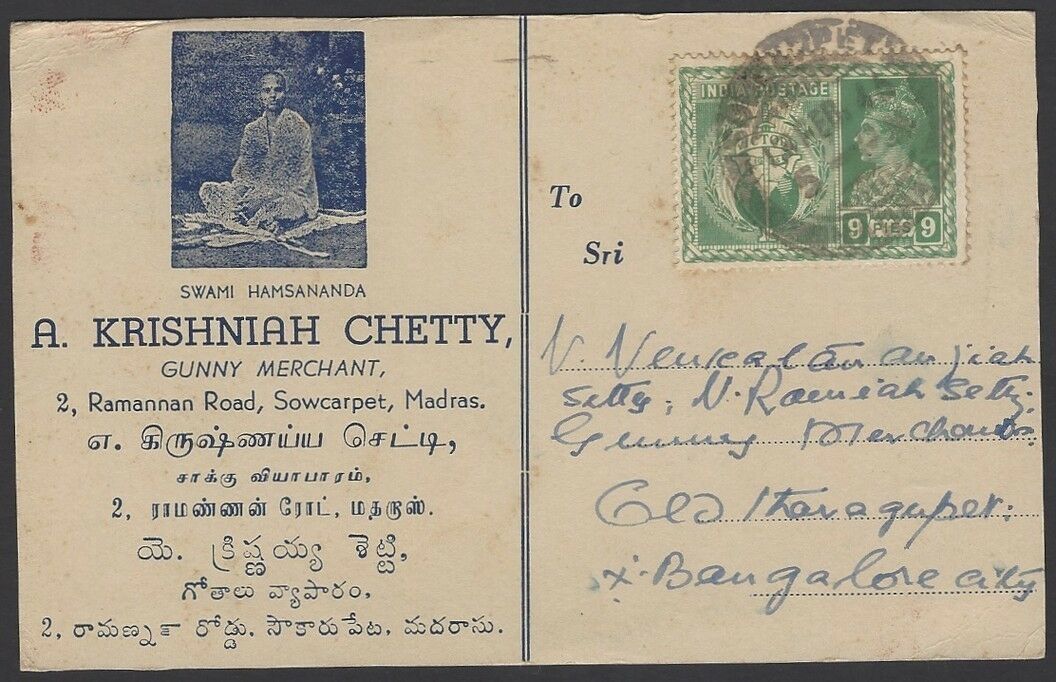 SWAMI HAMSANANDA
A. KRISHNIAH CHETTY,
GUNNY MERCHANT,
2, Ramannan Road, Sowcarpet, Madras.
எ. கிருஷ்ணய்ய செட்டி,
சாக்கு வியாபாரம்,
2, ராமண்ணன் ரோட், மதறாஸ்.
యె. క్రిష్ణయ్య శెట్టి,
గోతాలు వ్యాపారం,
2, రామణ్న రోడ్డు, సౌకారుపేట, మదరాసు.
INDIA POSTAGE
VICTORY
9 PIES 9
To
Sri
V. Venkataramanjiah
Setty, N. Ramiah Setty.
Gunny Merchants
Old Tharagupet.
x. Bangalore city